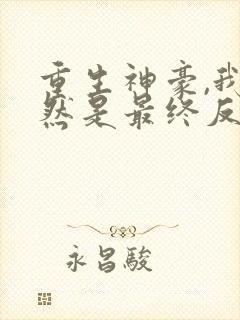 重生神豪,我
然是最终反
永昌駿